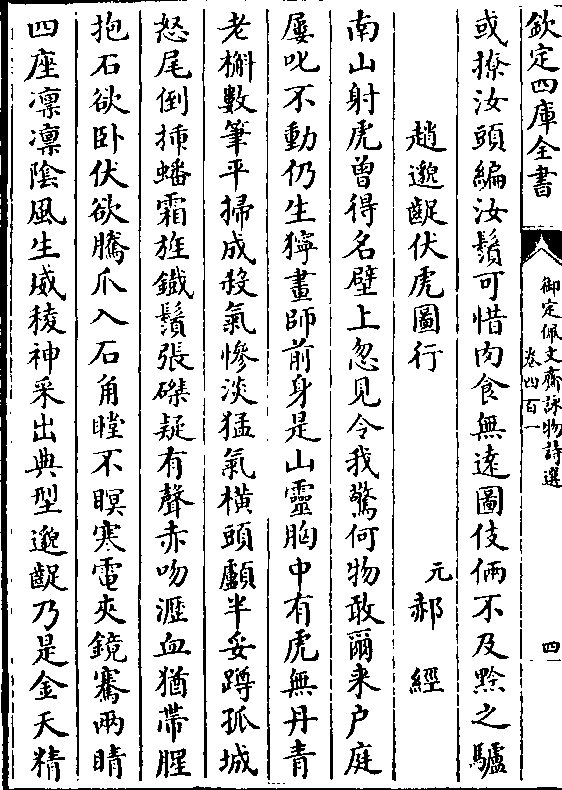 欽定四庫全書
御定佩文齋詠物詩選
卷四百一
四
或撩汝頭編汝鬚可惜肉食無遠圖伎倆不及黔之驢
趙邈齪伏虎圖行
元郝經
南山射虎曾得名壁上忽見令我驚何物敢爾来户庭
屢叱不動仍生獰畫師前身是山靈胸中有虎無丹青
老槲數筆平掃成殺氣慘淡猛氣橫頭顱半妥蹲孤城
怒尾倒揷蟠霜旌鐵鬚張磔疑有聲赤吻瀝血猶帶腥
抱石欲卧伏欲騰爪入石角瞠不瞑寒電夾鏡騫兩睛
四座凛凛陰風生威稜神采出典型邈齪乃是金天精